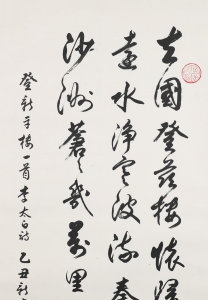 去國登茲樓懷歸
遠水淨寒波流秦
沙洲蒼々幾萬里
登新平樓一首李太白詩乙丑新